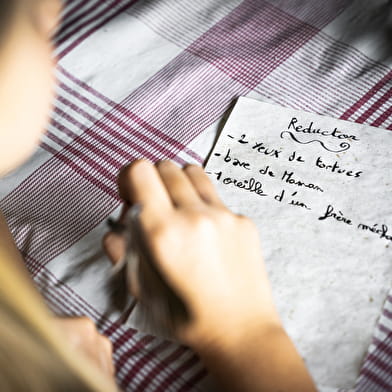 Reductor
- 2 yeux de tortues
- bave de Maman
- 1 oreille d'un frère